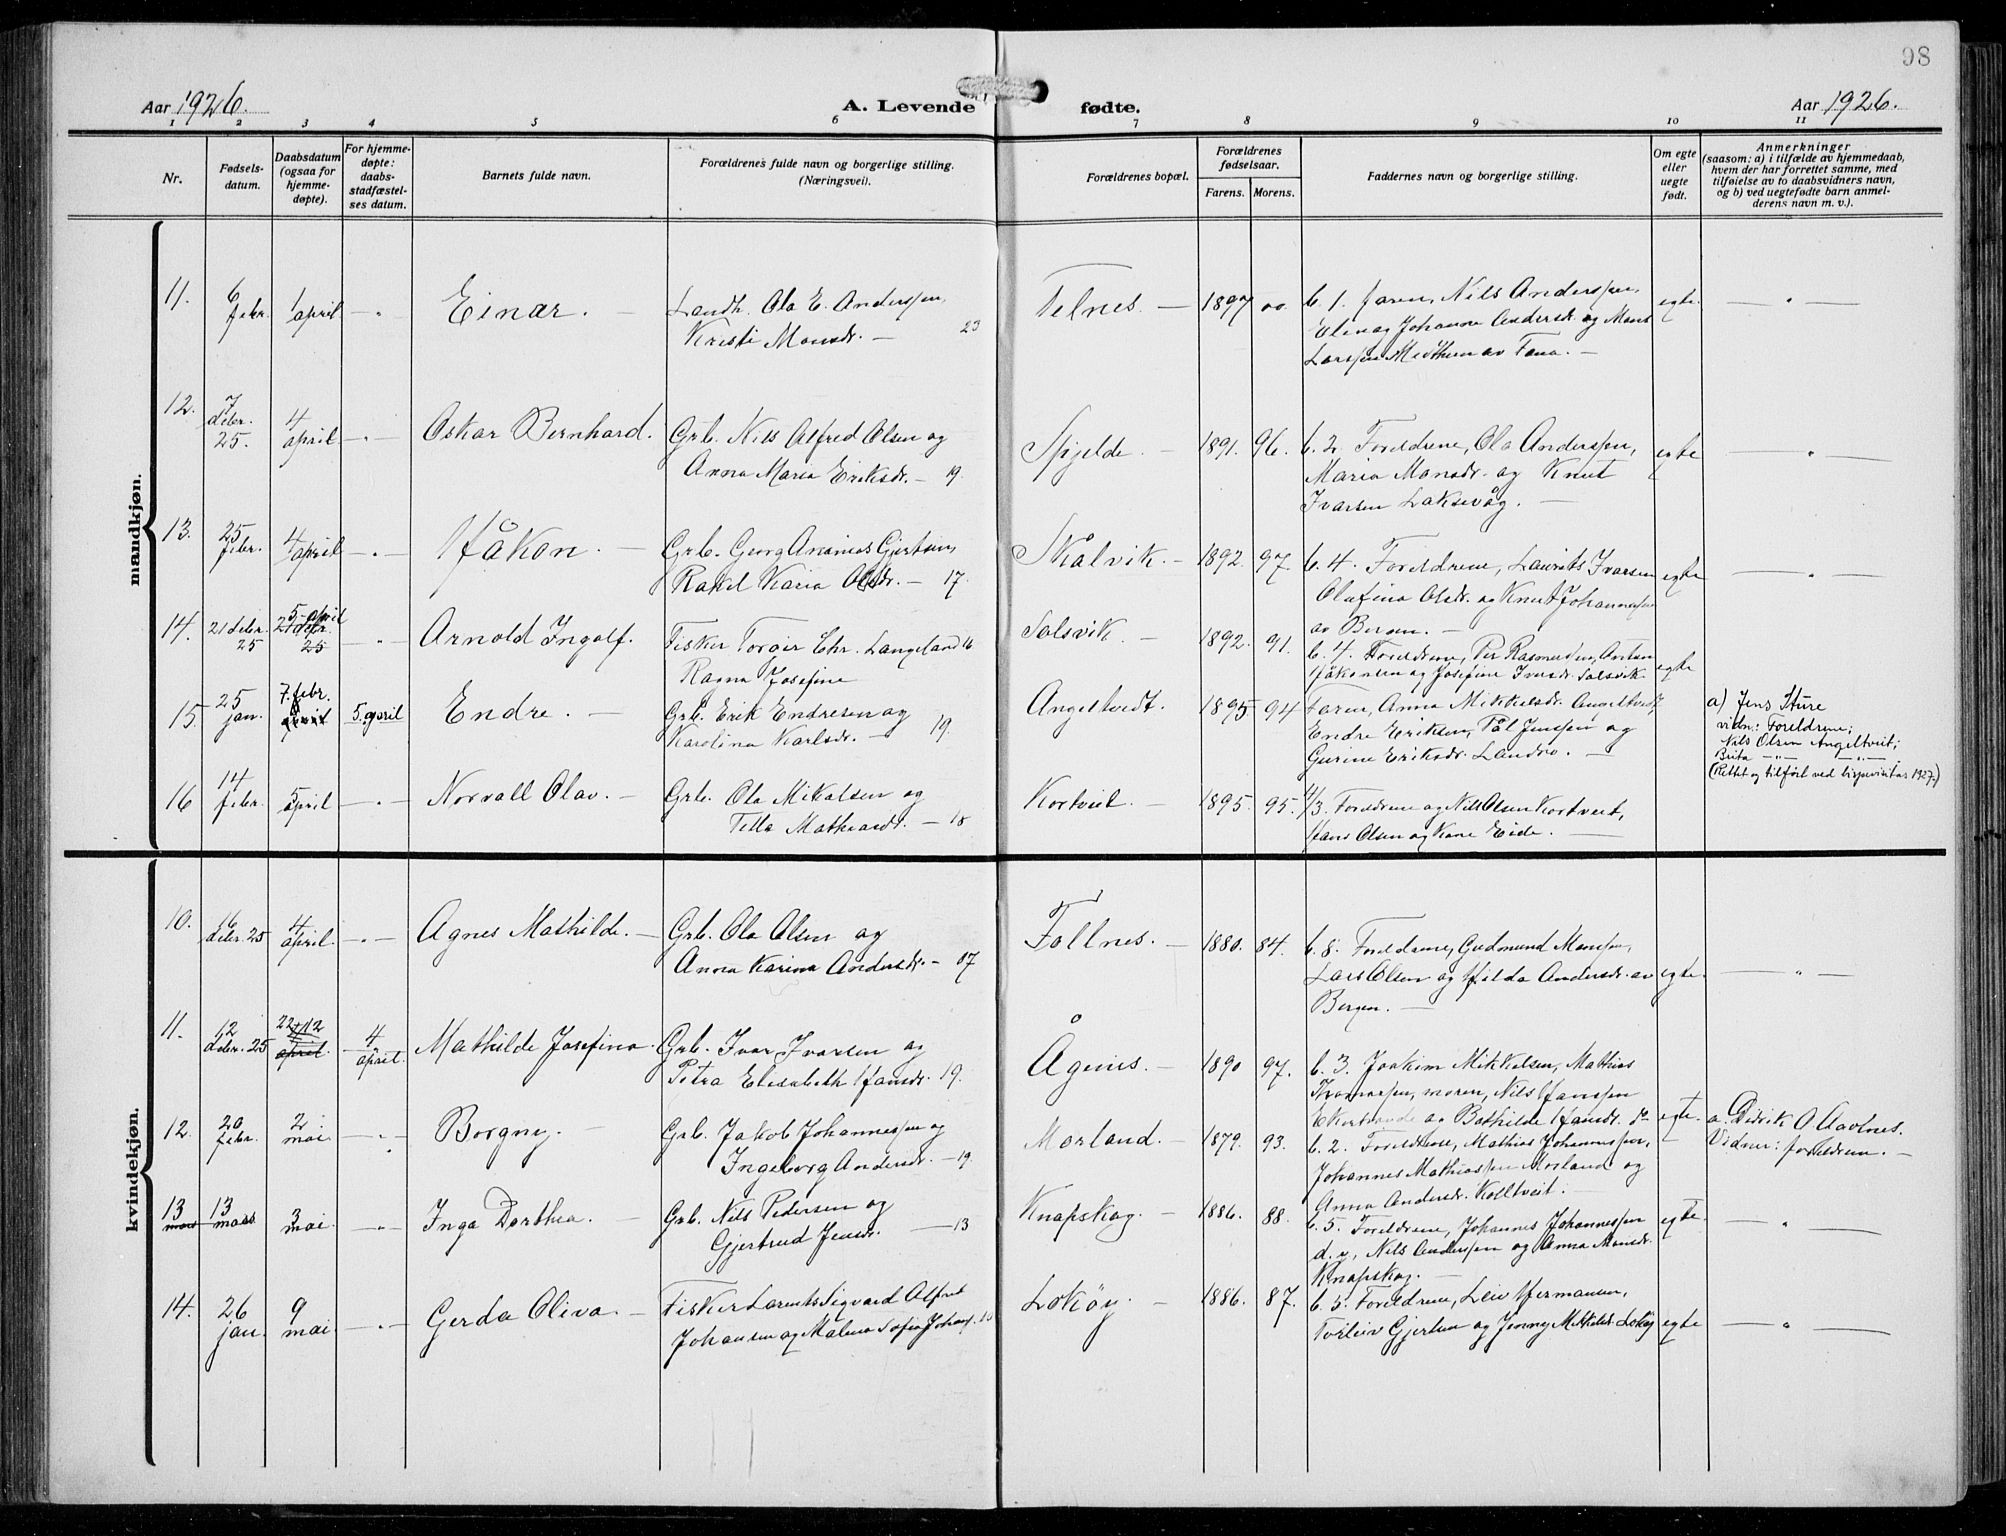 98
Aar 1926.
A. Levende fødte.
Aar 1926.
1 2 3 4 5 6 7 8 9 10 11
Nr.
Fødsels-
datum.
Daabsdatum
(ogsaa for
hjemme-
døpte).
For hjemme-
døpte:
daabs-
stadfæstel-
ses datum.
Barnets fulde navn.
Forældrenes fulde navn og borgerlige stilling.
(Næringsvei).
Forældrenes bopæl.
Forældrenes
fødselsaar.
Farens. Morens.
Faddernes navn og borgerlige stilling.
Om egte
eller
uegte
født.
Anmerkninger
(saasom: a) i tilfælde av hjemmedaab,
hvem der har forrettet samme, med
tilføielse av to daabsvidners navn,
og b) ved uegtefødte barn anmel-
derens navn m. v.).
mandkjøn.
11. 6 febr. 1 april - " - Einar. -
Landh. Ola E. Anderssen,
Kristi Monsdr. - 23
Telnes. - 1897 00.
b. 1. faren, Nils Anderssen,
Elen og Johanne Andersdr. og Mons
Larssen Midthun av Fana. -
egte - " -
12. 7 debr. 25. 4 april - " - Oskar Bernhard.
Grb. Nils Alfred Olsen og
Anna Maria Eriksdr. - 19.
Spjelde. - 1891. 96.
b. 2. Foreldrene, Ola Anderssen,
Maria Monsdr. og Knut
Ivarsen Laksevåg. -
egte - " -
13. 25 febr. 4 april - " - Håkon. -
Grb. Georg Ananias Gjertsen,
Rakel Karia Olsdr. - 17.
Skålvik. - 1892. 97
b. 4. Foreldrene, Laurits Ivarsen
Olafina Olsdr. og Knut Johannessen
av Bergen. -
egte - " -
14. 21 debr. 25 5 april 21 debr. 25 - " - Arnold Ingolf.
Fisker Torger Chr. Langeland 16
Ragna Josefine
Solsvik. - 1892. 91.
b. 4. Foreldrene, Per Rasmussen, Anton
Håkonsen og Josefine Ivarsdr. Solsvik.
egte
15. 25 jan. 7. febr. april 5. april Endre. -
Grb. Erik Endresen og
Karolina Karlsdr. - 19.
Angeltvedt. 1895. 94
Faren, Anna Mikkelsdr. Angeltvedt,
Endre Eriksen, Pål Jenssen og
Gurine Eriksdr. Landro. -
a) Jens Sture
vidn: Foreldrene;
Nils Olsen Angeltveit;
Brita - " - - " -
(Rettet og tilført ved bispevisitas 1927.)
16 14 febr. 5 april - " - Norvall Olav. -
Grb. Ola Mikalsen og
Tella Mathiasdr. - 18
Kortveit. - 1895. 95.
4/3. Foreldrene og Nils Olsen Kortveit,
Hans Olsen og Kare Eide. -
kvindekjøn.
10. 16 debr. 25 4 april. - " - Agnes Mathilde. -
Grb. Ola Olsen og
Anna Karina Andersdr. - 07
Follnes. - 1880. 84.
b. 8. Foreldrene, Gudmund Monssen,
Lars Olsen og Hilda Andersdr. av
Bergen. -
egte. - " -
11. 12 debr. 25 22/12 april. 4 april. Mathilde Josefina.
Grb. Ivar Ivarsen og
Petra Elisabeth Hansdr. 19.
Ågenes. - 1890 97.
b. 3. Joakim Mikkelsen, Mathias
moren, Nils Hanssen
og Bathilde Hansdr. do
egte.
12. 20 febr. 2 mai - " - Borgny. -
Grb. Jakob Johannessen og
Ingeborg Andersdr. - 19.
Morland. - 1879. 93.
b. 2. Foreldrene, Mathias Johannessen,
Johannes Mathiassen Morland og
Anna Andersdr. Kolltveit. -
a. Didrik O Aavtnes.
Vidner: foreldrene. -
13 mars 13 mars 3 mai. - " - Inga Dorthea. -
Grb. Nils Pedersen og
Gjertrud Jensdr. - 13
Knapskog. - 1886. 88.
b. 5. Foreldrene, Johannes Johannessen
d. y., Nils Anderssen og Anna Monsdr.
Knapskog. -
egte. - " -
14. 26 jan. 9 mai. - " - Gerda Oliva. -
Fisker Larents Sigvard Alfred
Johansen og Malena Sofia
Lokøy. - 1886. 87.
b. 5. Foreldrene, Leiv Hermansen,
Torleiv Gjertsen og Jenny Lokøy
egte - " -